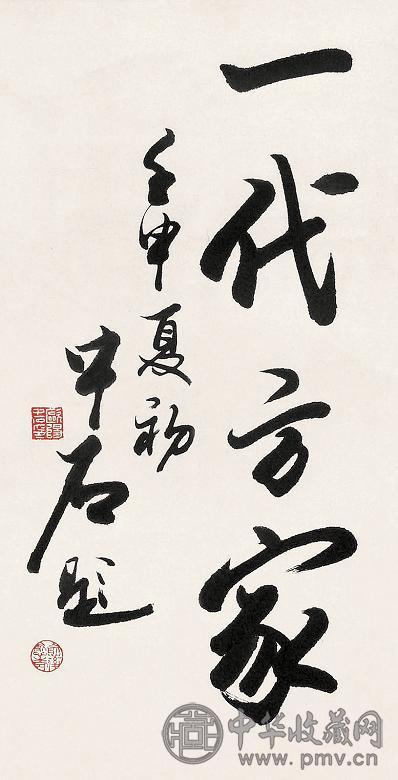 一代方家
壬申夏初
中石题
中华收藏网
www.pmv.cn